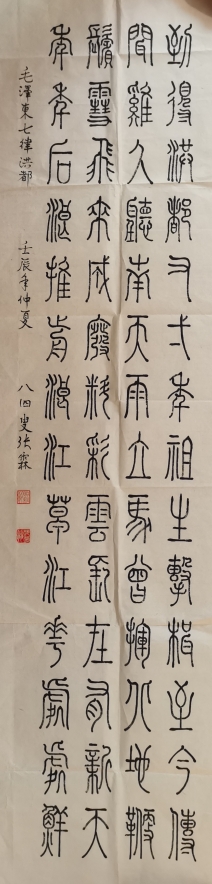 到得洪都又弌年祖生擊楫至今傳
聞雞久聽南天雨立馬曾揮北地鞭
鬢雪飛來成廢料彩雲長在有新天
年年后浪推前浪江草江花處處鮮
毛澤東七律洪都 壬辰年仲夏 八四叟张霖